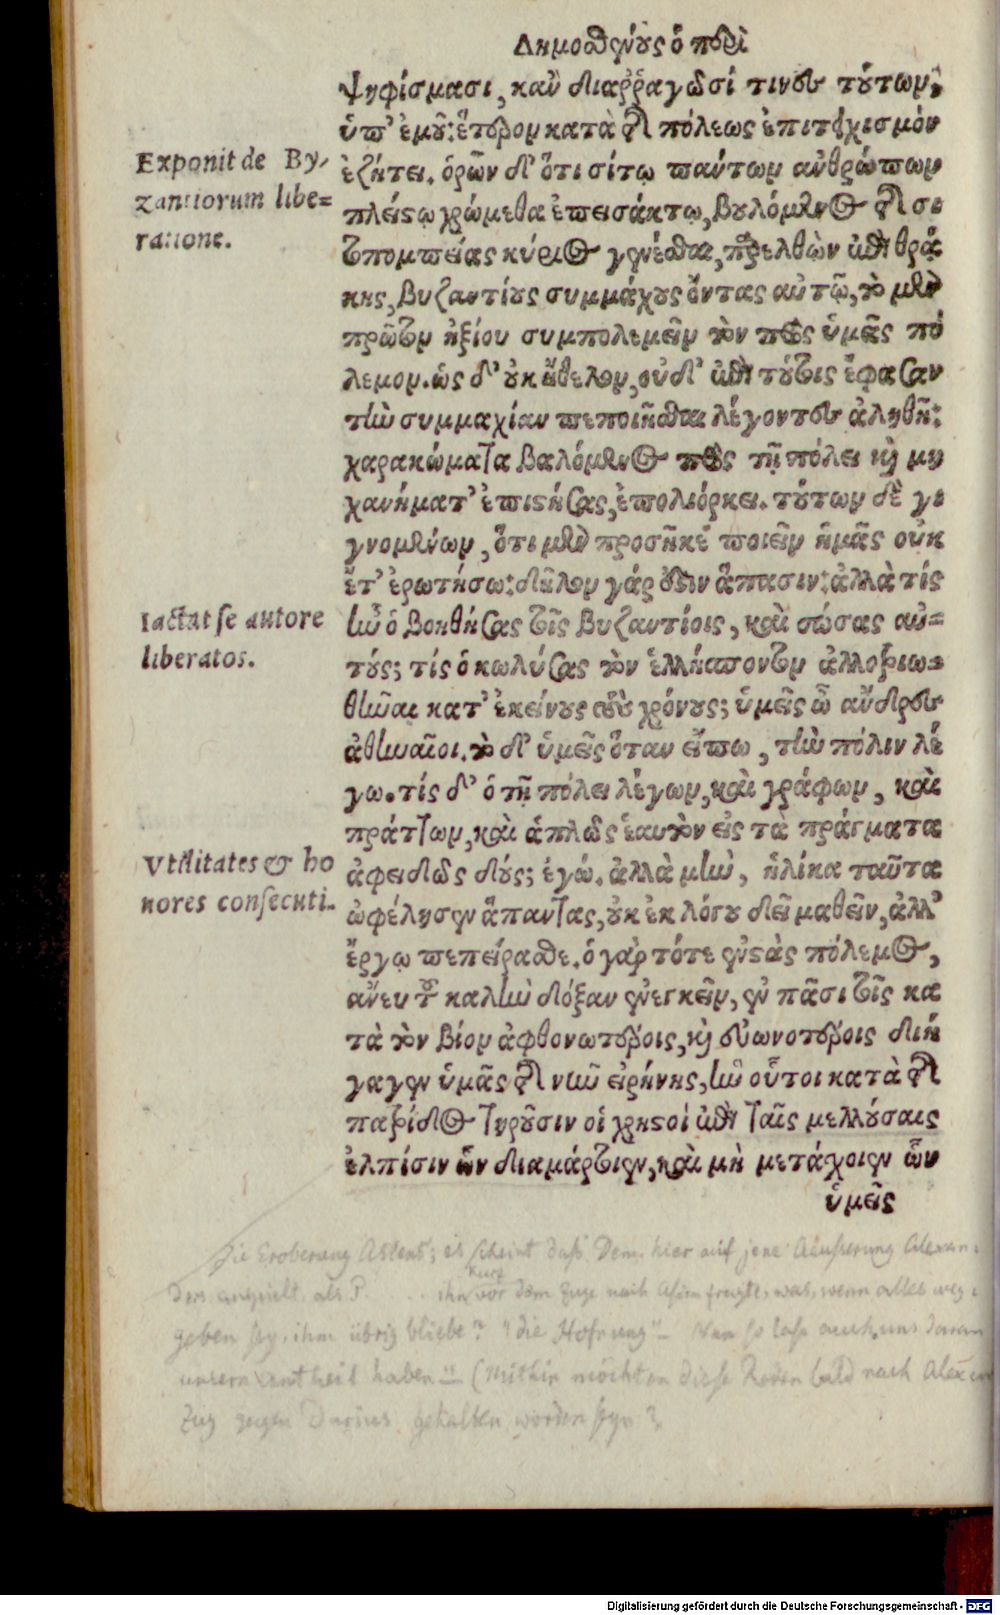 Δημοσθένους ὁ περὶ
ψηφίσμασι, κἂν διαῤῥαγῶσί τινες τούτων,
ὑπ' ἐμοῦ: ἕτερον κατὰ τῆς πόλεως ἐπιτειχισμὸν
Exponit de By-
ἐζήτει. ὁρῶν δ' ὅτι σίτῳ πάντων ἀνθρώπων
zantiorum libe=
πλείστῳ χρώμεθα ἐπεισάκτῳ, βουλόμενος τῆς σι
ratione.
τοπομπείας κύριος γενέσθαι, παρελθὼν ἐπὶ θρᾴ
κης, βυζαντίους συμμάχους ὄντας αὐτῷ, τὸ μὲν
πρῶτον ἠξίου συμπολεμεῖν τὸν πρὸς ὑμᾶς πό
λεμον. ὡς δ' οὐκ ἤθελον, οὐδ' ἐπὶ τούτοις ἔφασαν
τὴν συμμαχίαν πεποιῆσθαι λέγοντες ἀληθῆ:
χαρακώματα βαλόμενος πρὸς τῇ πόλει καὶ μη
χανήματ' ἐπιστήσας, ἐπολιόρκει. τούτων δὲ γι
γνομένων, ὅτι μὲν προσῆκέ ποιεῖν ἡμᾶς οὐκ
ἔτ' ἐρωτήσω: δῆλον γάρ ἐστιν ἅπασιν: ἀλλὰ τίς
Iactat se autore
ἦν ὁ βοηθήσας τοῖς βυζαντίοις, καὶ σώσας αὐ=
liberatos.
τούς; τίς ὁ κωλύσας τὸν ἑλλήσποντον ἀλλοτριω=
θῆναι κατ' ἐκείνους τοὺς χρόνους; ὑμεῖς ὦ ἄνδρες
ἀθηναῖοι. τὸ δ' ὑμεῖς ὅταν εἴπω, τὴν πόλιν λέ
γω. τίς δ' ὁ τῇ πόλει λέγων, καὶ γράφων, καὶ
πράττων, καὶ ἁπλῶς ἑαυτὸν εἰς τὰ πράγματα
Vtilitates & ho
ἀφειδῶς δούς; ἐγώ. ἀλλὰ μὴν, ἡλίκα ταῦτα
nores consecuti.
ὠφέλησεν ἅπαντας, οὐκ ἐκ λόγου δεῖ μαθεῖν, ἀλλ'
ἔργῳ πεπείρασθε. ὁ γὰρ τότε ἐνστὰς πόλεμος,
ἄνευ τοῦ καλὴν δόξαν ἐνεγκεῖν, ἐν πᾶσι τοῖς κα
τὰ τὸν βίον ἀφθονωτέροις, καὶ εὐωνοτέροις διή
γαγεν ὑμᾶς τῆς νῦν εἰρήνης, ἣν οὗτοι κατὰ τῆς
πατρίδος τηροῦσιν οἱ χρηστοὶ ἐπὶ ταῖς μελλούσαις
ἐλπίσιν ὧν διαμάρτοιεν, καὶ μὴ μετάχοιεν ὧν
ὑμεῖς
Die Eroberung Asiens; es scheint daß Dem. hier auf jene Äußerung Alexan-
ders anspielt, als P. ihn kurz vor dem Zuge nach Asien fragte, was, wenn alles weg-
geben sey, ihm übrig bliebe? "die Hofnung" – Nun so laß auch uns daran
unsern antheil haben" (Mithin möchten diese Reden bald nach Alexan
Zug gegen Darius gehalten worden seyn?
Digitalisierung gefördert durch die Deutsche Forschungsgemeinschaft - DFG